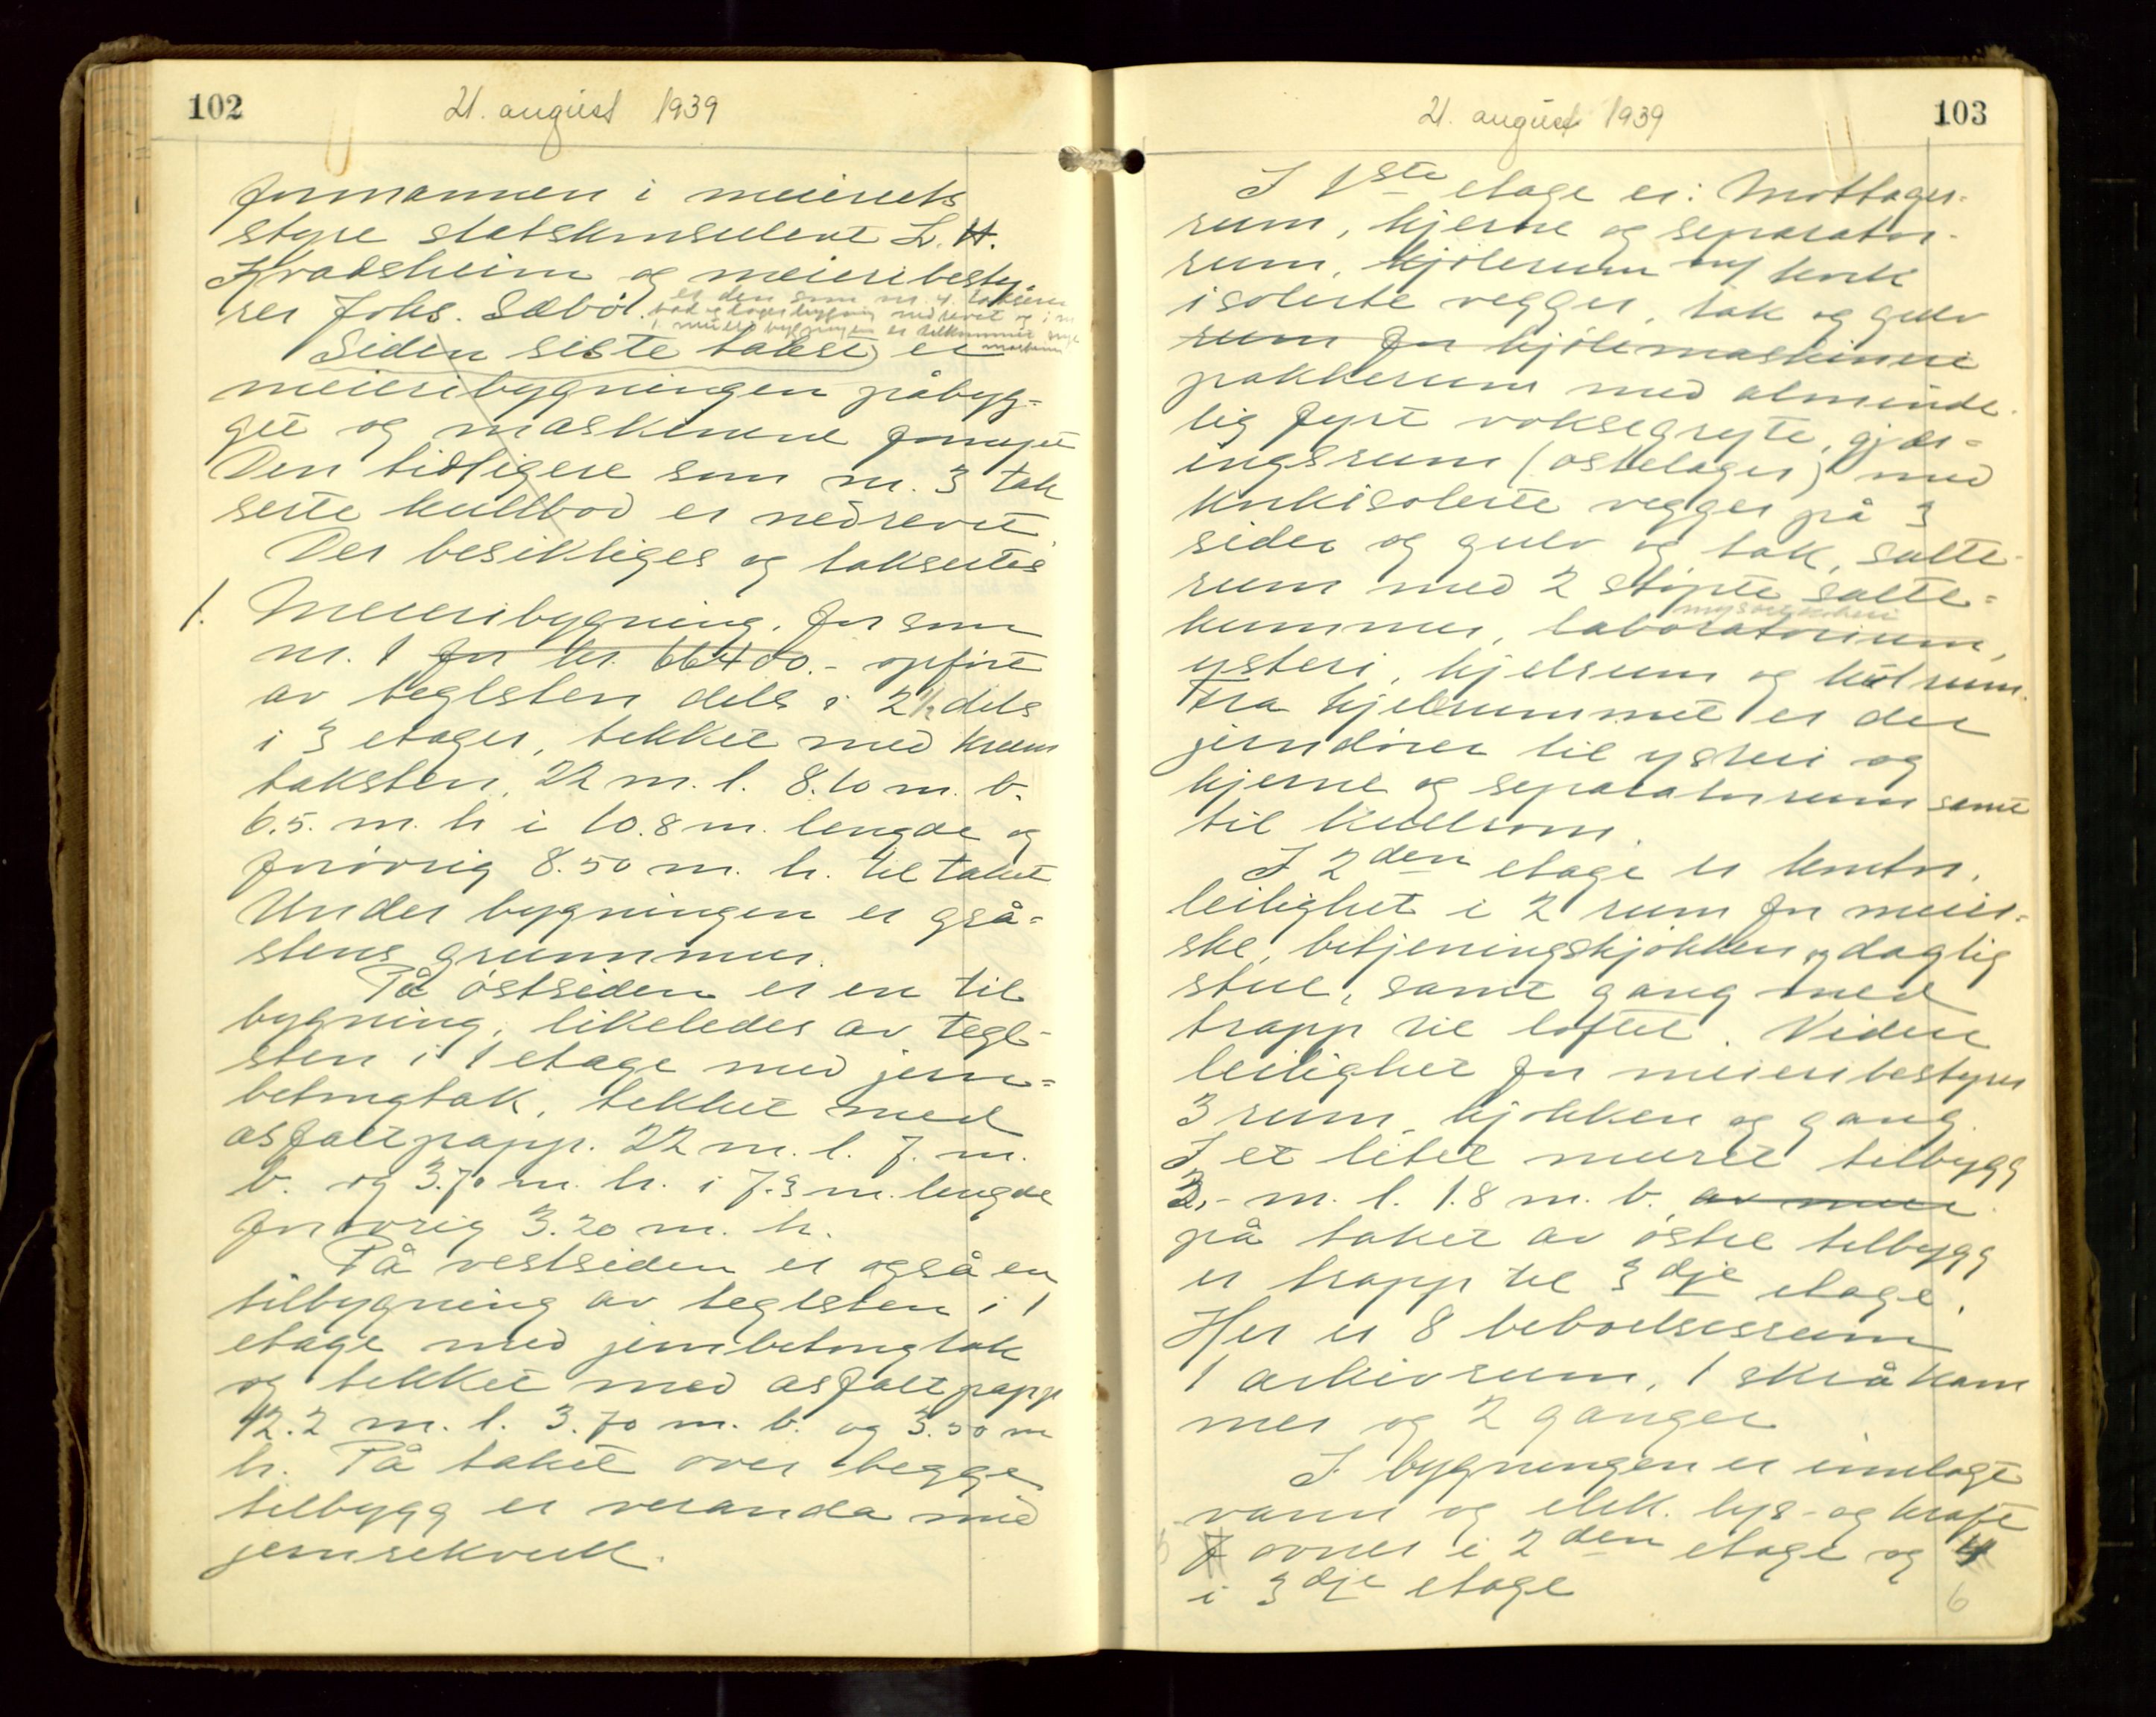 102
21. august 1939
formannen i meieriets
styre statskonsulent L. H.
Kvadsheim og meieribesty-
rer Johs. Sæbö.
er den som nr. 4. takserte
bod og lagerbygning nedrevet og i
i meieribygningen er tilkommet nye
maskiner
Siden siste takst er
meieribygningen påbyg-
get og maskinene fornyet
Den tidligere som nr. 3 tak
serte kullbod er nedrevet
Der besiktiges og takseres
1. Meieribygning, før som
nr. 1 for kr. 66400.- opført
av teglsten dels i 2½ dels
i 3 etager, tekket med krum
taksten, 22 m. l. 8.10 m. b.
6.5. m. h i 10.8 m. lengde og
forøvrig 8.50 m. h. til taket
Under bygningen er grå-
stens grunnmur.
På østsiden er en til
bygning, likeledes av tegl-
sten i 1 etage med jern-
betongtak, tekket med
asfaltpapp. 22 m. l. 7. m.
b. og 3.70 m. h. i 7.3 m. lengde
forøvrig 3.20 m. h.
På vestsiden er også en
tilbygning av teglsten i 1
etage med jernbetongtak
og tekket med asfaltpapp
42.2 m. l. 3.70 m. b. og 3.50 m
h. På taket over begge
tilbygg er veranda med
jernrekverk.
21. august 1939
103
I 1ste etage er: Mottager-
rum, kjerne og separator-
rum, kjølerum m/ kork
isolerte vegger, tak og gulv
rum for kjølemaskineri
pakkerum med alminde-
lig fyrt voksegryte, gjær-
ingsrum (ostelager) med
korkisolerte vegger på 3
sider og gulv og tak, salte-
rum med 2 støpte salte-
mysostkokeri
kummer, laboratorium,
ysteri, kjelrum og kulrum.
Fra kjelrummet er der
jerndører til ysteri og
kjerne og separatorrum samt
til kullrom.
I 2den etage er kontor,
leilighet i 2 rum for meier-
ske, betjeningskjøkken og daglig
stue, samt gang med
trapp til loftet. Videre
leilighet for meieribestyrer
3 rum, kjøkken og gang.
I et litet muret tilbygg
2,- m. l. 1.8 m. b. av mur
på taket av østre tilbygg
er trapp til 3dje etage.
Her er 8 beboelsesrum
1 arkivrum, 1 skråkam
mer og 2 ganger
I bygningen er innlagt
vann og elek. lys- og kraft
5 7 ovner i 2den etage og 4
i 3dje etage 6